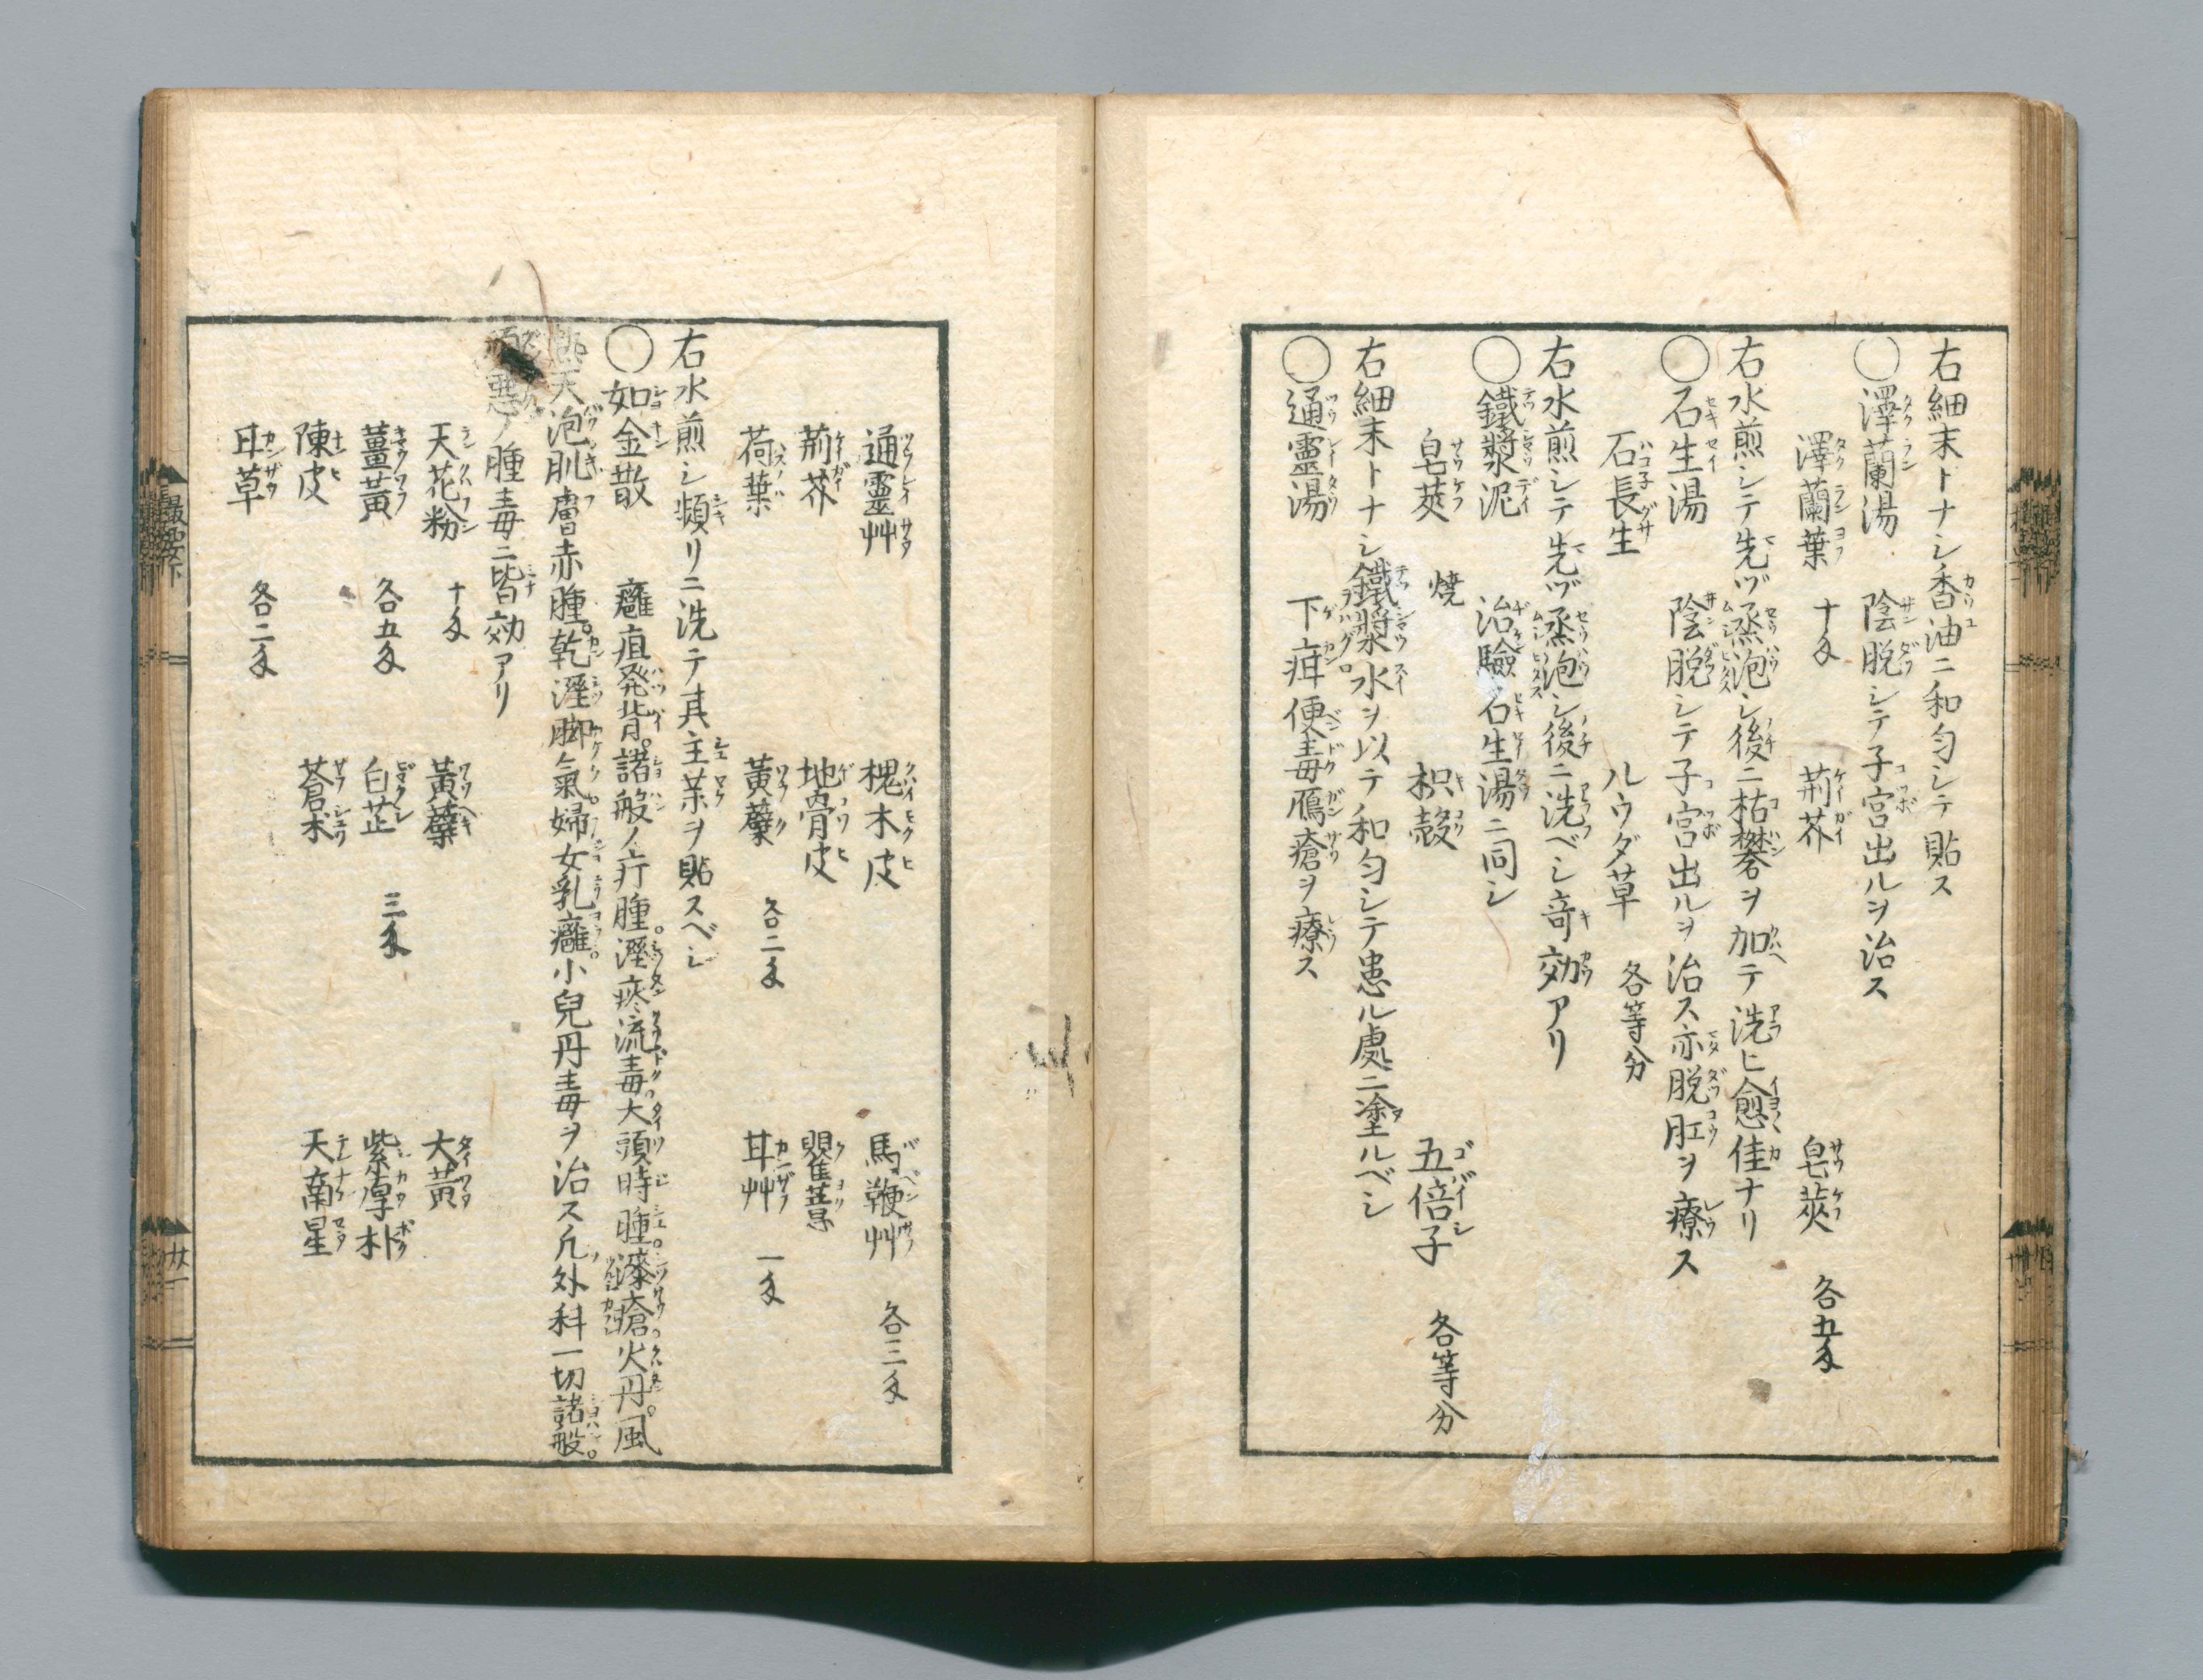 右細末トナシ香油ニ和匀シテ貼ス
○澤蘭湯 陰脱シテ子宮出ルヲ治ス
澤蘭葉 十匁 荊芥 皂莢 各五匁
右水煎シテ先ヅ蒸泡シ後ニ枯礬ヲ加テ洗ヒ愈佳ナリ
○石生湯 陰脱シテ子宮出ルヲ治ス亦脱肛ヲ療ス
石長生 ルウダ草 各等分
右水煎シテ先ヅ蒸泡シ後ニ洗ベシ竒効アリ
○鐵漿泥 治驗石生湯ニ同シ
皂莢 焼 枳殻 五倍子 各等分
右細末トナシ鐵漿水ヲ以テ和匀シテ患ル處ニ塗ルベシ
○通靈湯 下疳便毒鴈瘡ヲ療ス
通靈艸 槐木皮 馬鞭艸 各三匁
荊芥 地骨皮 瞿麦
荷葉 黄蘗 各二匁 甘艸 一匁
右水煎シ頻リニ洗テ其主薬ヲ貼スベシ
○如金散 癰疽発背。諸般ノ疔腫。溼痰流毒。大頭時腫。漆瘡火丹。風
熱天泡肌膚赤腫。乾溼脚氣婦女乳癰。小兒丹毒ヲ治ス凢外科一切諸般。
頑悪ノ腫毒ニ皆効アリ
天花粉 十匁 黄蘗 大黄
薑黄 各五匁 白芷 三匁 紫厚朴
陳皮 蒼朮 天南星
甘草 各二匁
廿一